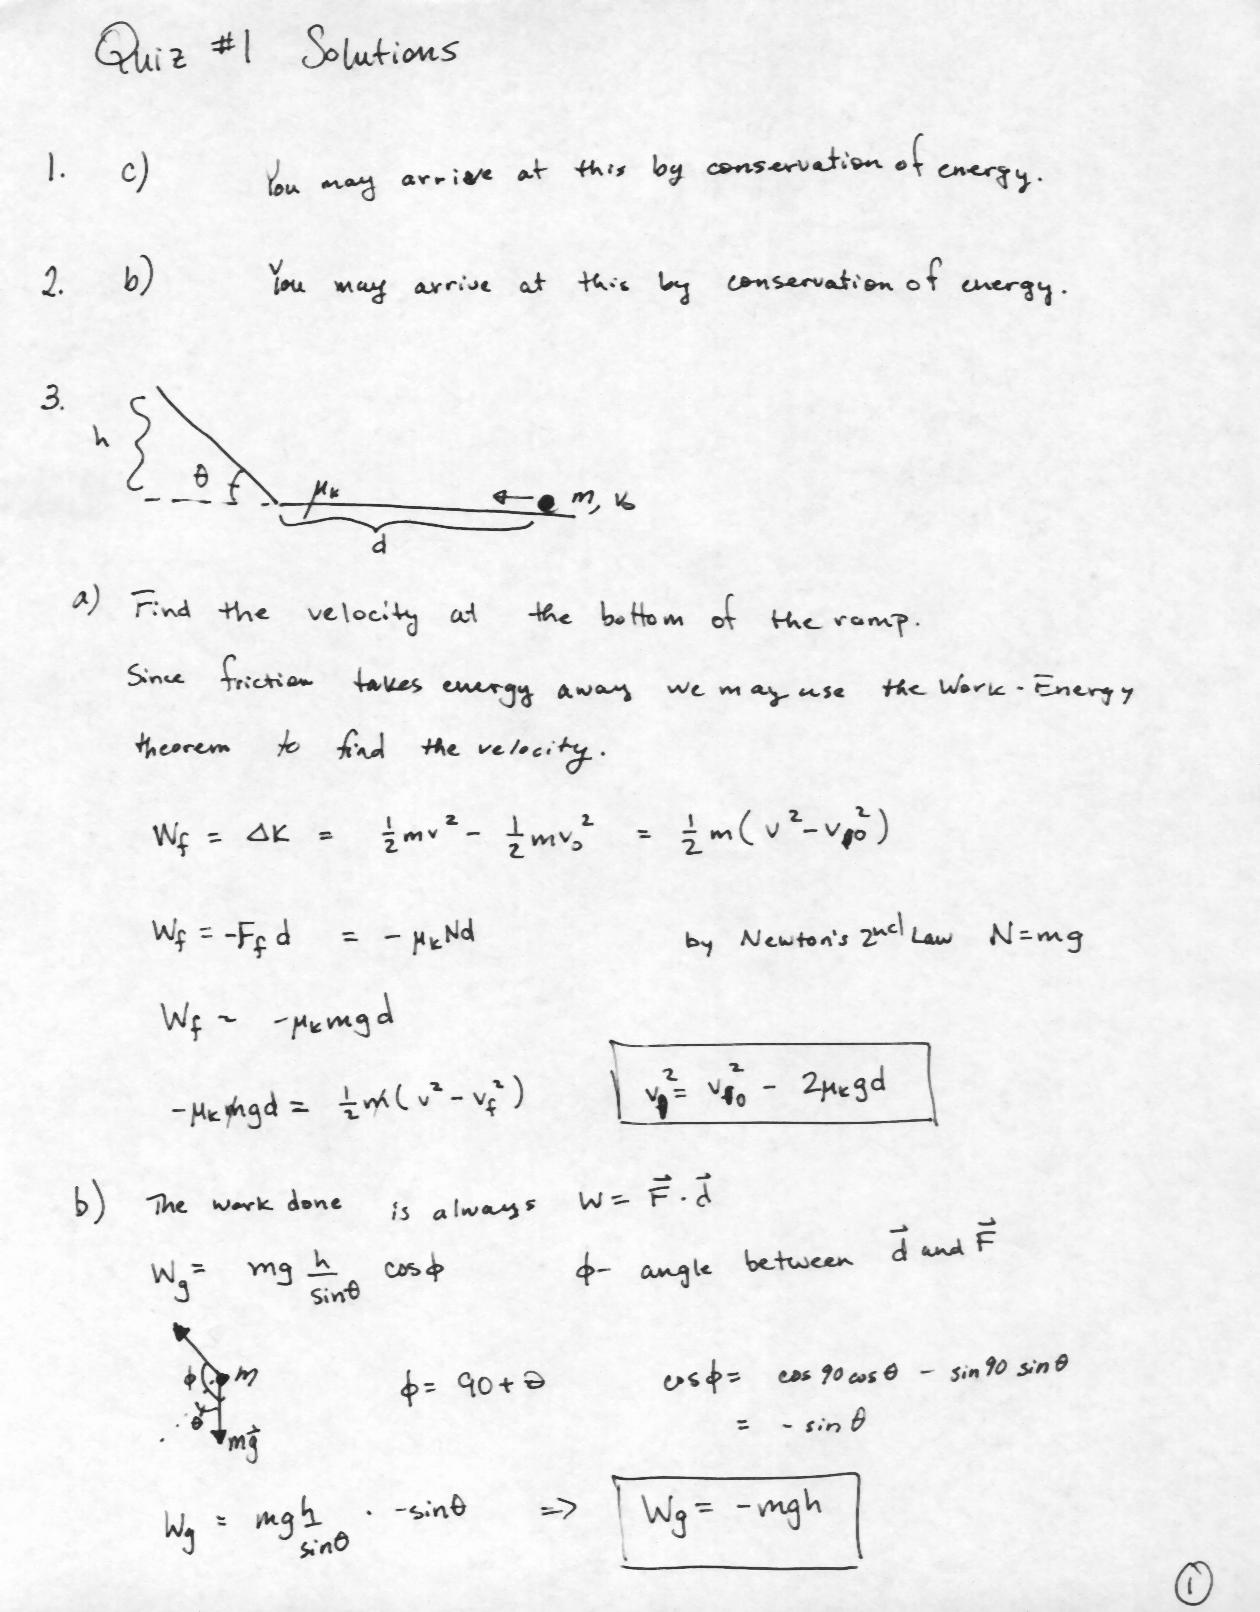 Quiz #1 Solutions
1. c) You may arrive at this by conservation of energy.
2. b) You may arrive at this by conservation of energy.
3.
h
θ
μₖ
m, v₀
d
a) Find the velocity at the bottom of the ramp.
Since friction takes energy away we may use the Work-Energy
theorem to find the velocity.
W_f = ΔK = ½mv² - ½mv₀² = ½m(v² - v₀²)
W_f = -F_f d = -μₖNd by Newton's 2nd Law N=mg
W_f = -μₖmgd
-μₖmgd = ½m(v² - v_f²)
v² = v₀² - 2μₖgd
b) The work done is always W = F⃗ · d⃗
W_g = mg h/sinθ cosϕ ϕ- angle between d⃗ and F⃗
ϕ
m
θ
mg⃗
ϕ = 90+θ cosϕ = cos90cosθ - sin90 sinθ
= - sinθ
W_g = mgh/sinθ · -sinθ => W_g = -mgh
1